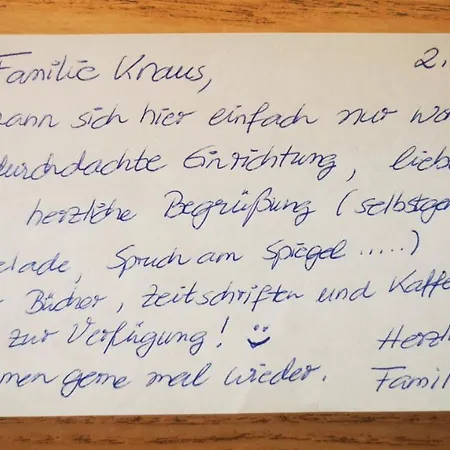 Familie Knaus, 2.
ann sich hier einfach nur wo
durchdachte Einrichtung, lieb
herzliche Begrüßung (selbstge
elade, Spruch am Spiegel .....)
Bücher, Zeitschriften und Kaffe
zur Verfügung! Herzl
men gerne mal wieder. Famil